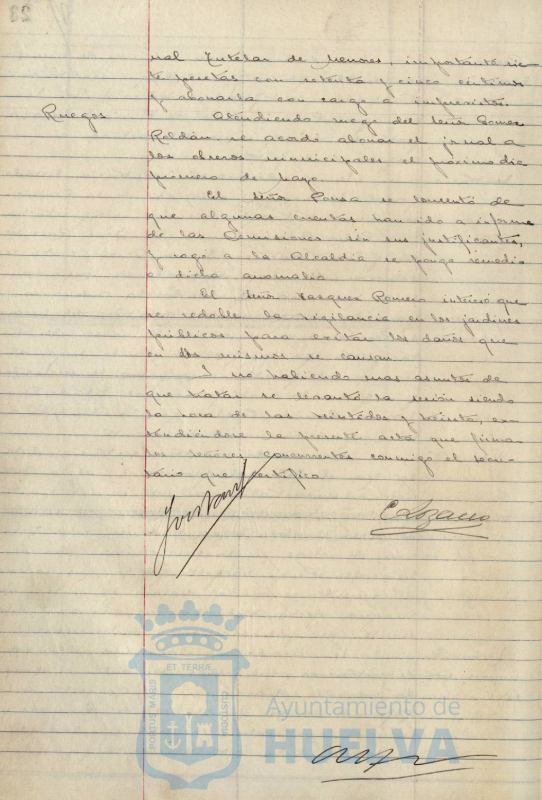 nal Tutelar de Menores, importante sie-
te pesetas con setenta y cinco céntimos
y abonarla con cargo a imprevistos.
Ruegos Atendiendo ruego del señor Gomez
Roldán se acordó abonar el jornal a
los obreros municipales el próximo dia
primero de Mayo.
El señor Ponsa se lamentó de
que algunas cuentas han ido a informe
de las Comisiones sin sus justificantes,
y rogó a la Alcaldía se ponga remedio
a dicha anomalía.
El señor Vazquez Romero interesó que
se redoble la vigilancia en los jardines
públicos para evitar los daños que
en los mismos se causan.
Y no habiendo mas asuntos de
que tratar se levantó la sesión siendo
la hora de las veintidos y treinta, ex-
tendiéndose la presente acta que firman
los señores concurrentes conmigo el secre-
tario que certifico.
C Lozano
PORTUS MARIS
ET TERRÆ
CUSTODIA
Ayuntamiento de
HUELVA